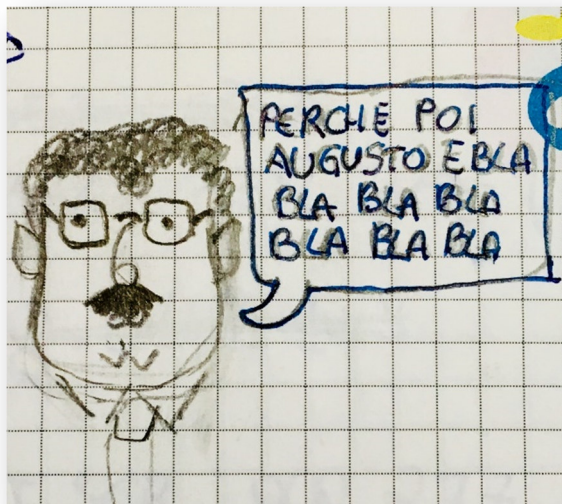 PERCHE POI
AUGUSTO E BLA
BLA BLA BLA
BLA BLA BLA